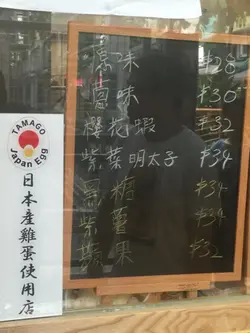 TAMAGO
Japan Egg
日本產雞蛋使用店
原味 $28
味 $30
櫻花蝦 $32
紫菜明太子 $34
黑糖 $34
紫薯 $34
果 $32